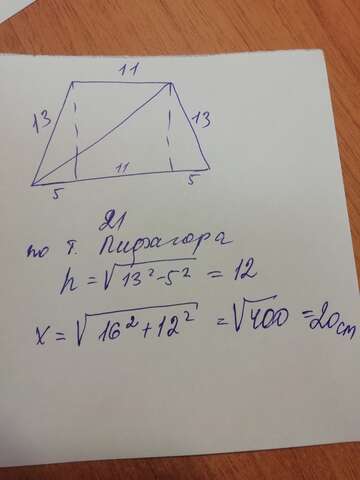 11
13
13
11
5
5
21
по т. Пифагора
h = √13² - 5² = 12
x = √16² + 12² = √400 = 20 см